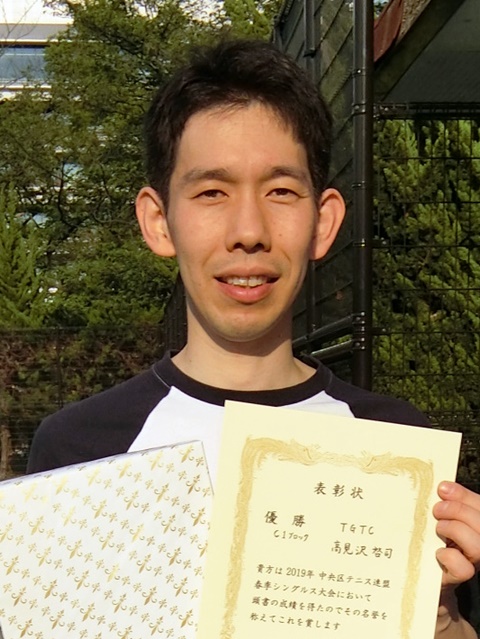 表彰状
優勝 TGTC
C1ブロック 高見沢 哲司
貴方は2019年 中央区テニス連盟
春季シングルス大会において
頭書の成績を得たのでその名誉を
称えてこれを賞します